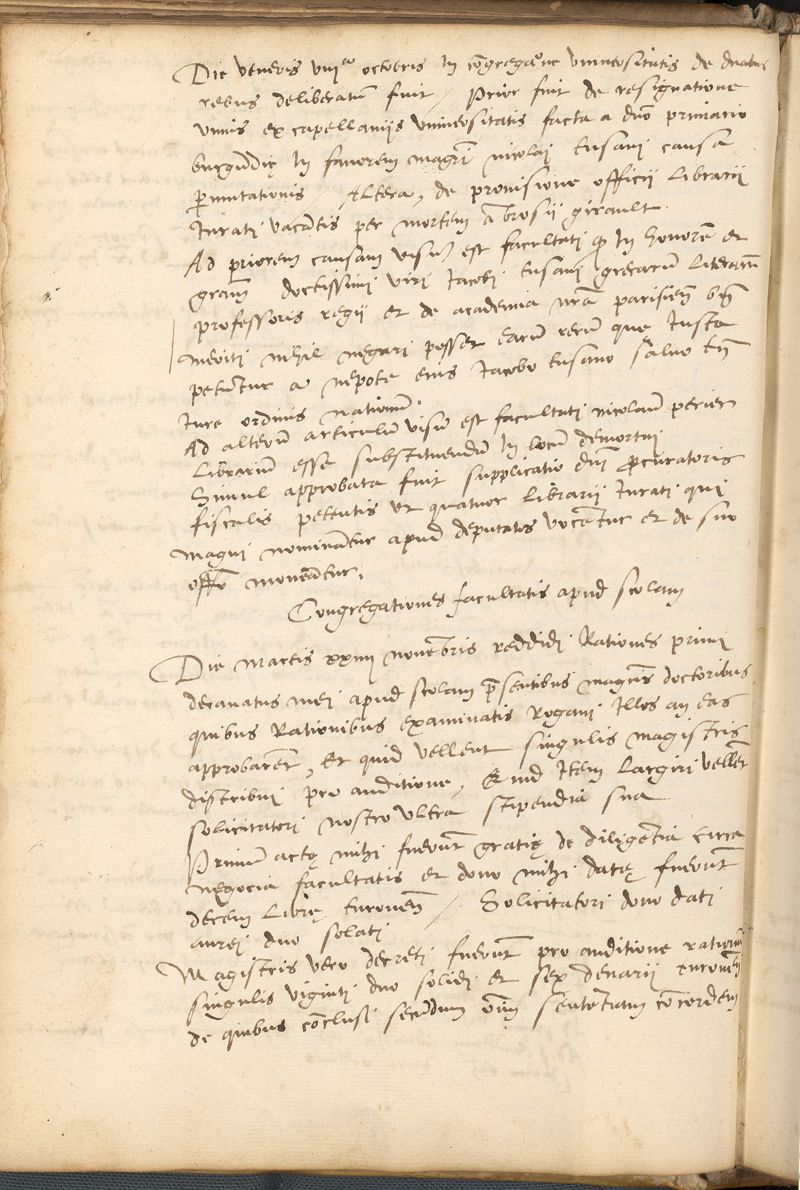 Die veneris viiia octobris In cōgregaōne vniversitatis de duabus
rebus deliberatum fuit / Prior fuit de resignatione
vnius ex capellaniis vniversitatis facta a dnō primario
burgūdię In favorem magrī nicolai tusani causa
ꝑmutationis / Altera, de provisione officii Librarii
Iurati vacātis per mortem ābrosii girault.
Ad priorem causam visū est facultati ꝙ In honorē et
gratiā doctissimi viri Iacobi tusani grecarū Literarum
professoris regii et de academia nrā parisieñ bñ
meriti nihil negari posset earū rerū que Iuste
petūtur a nepote eius Iacobo tusano salvo tñ
Iure ordinis nationū.
Ad alterū articulū visū est facultati nicolaū perier
Librariū esse substituendū In locū demortui
Simul approbata fuit supplicatio dnī procuratoris
fiscalis petentis vt quatuor Librarii Iurati qui
magni nominātur apud deputatos vocētur et de suo
offō moneātur.
Congregationes facultatis apud scolam
Die martis xxiiii novēbris reddidi Rationes primi
decanatus mei apud scolam p̄sentibus magrīs doctoribus
quibus Rationibus examinatis Rogavi Illos an eas
approbarēt, et quid vellent singulis magistris
distribui pro auditione, Quid Item Largiri vellēt
solicitatori nostro vltra stipendia sua
Primū actę mihi fuerūt gratię de diligētia circa
negocia facultatis et dono mihi datę fuerūt
decem Librę turoneñ / Solicitatori dono dati
aurei duo solati
Magistris vero decreti fuerūt pro auditione rationū
singulis viginti duo solidi et sex denarii turoneñ
de quibus cōclusi secūdum oīm sententiam cōcordem